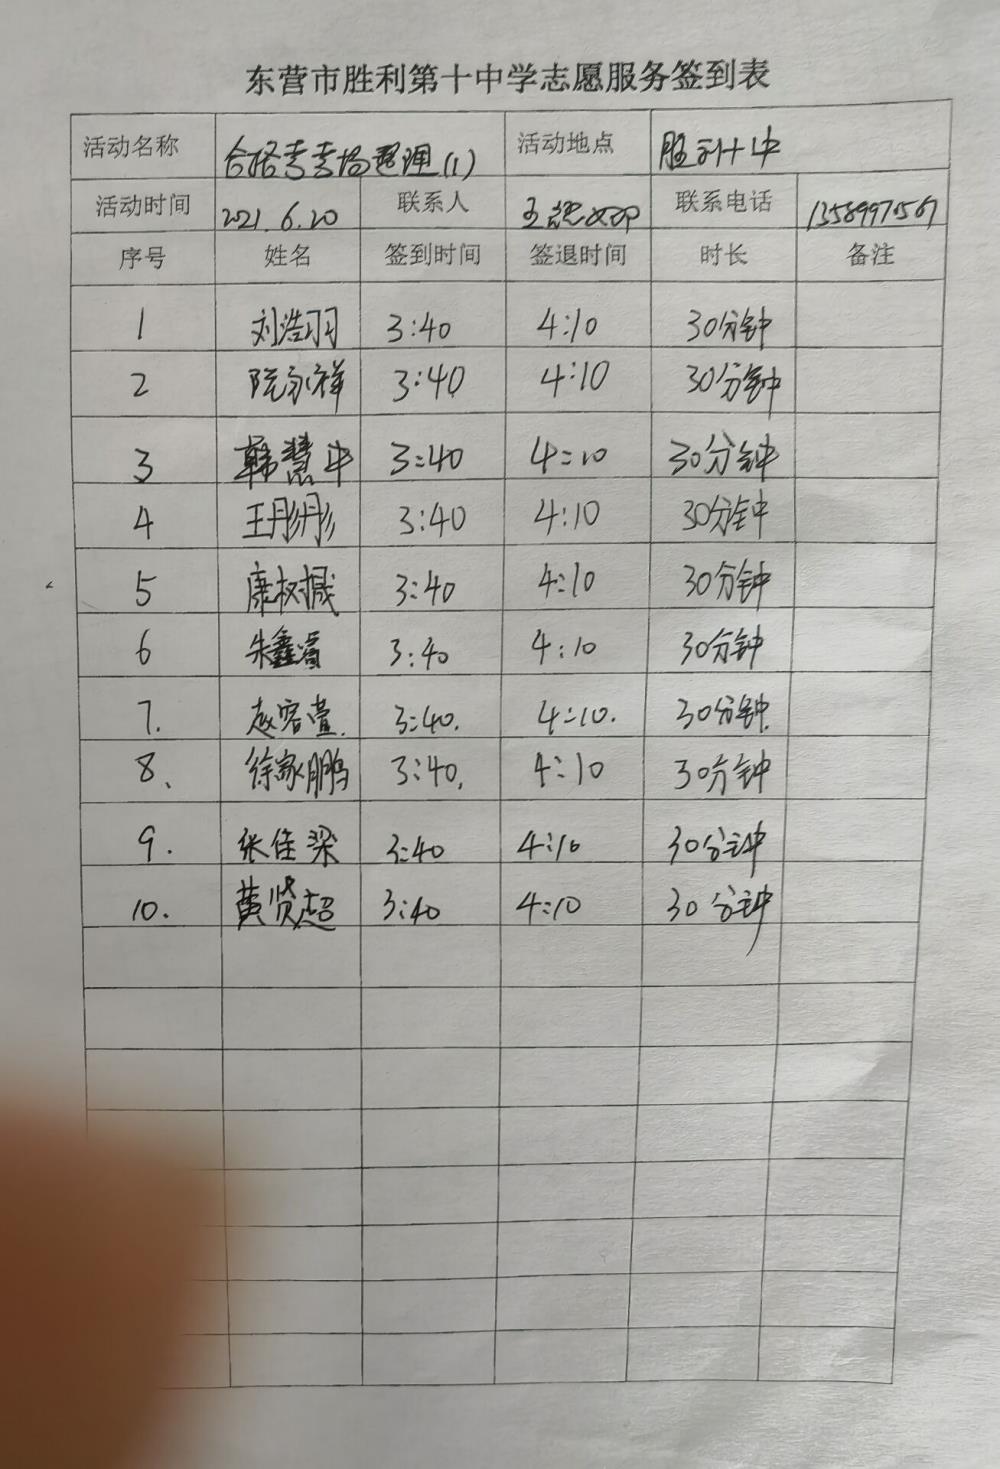 东营市胜利第十中学志愿服务签到表
活动名称 合格考考场整理(1) 活动地点 胜利十中
活动时间 2021.6.20 联系人 王 联系电话
序号 姓名 签到时间 签退时间 时长 备注
1 刘浩羽 3:40 4:10 30分钟
2 阮永祥 3:40 4:10 30分钟
3 韩慧中 3:40 4:10 30分钟
4 王彤彤 3:40 4:10 30分钟
5 康树晟 3:40 4:10 30分钟
6 朱鑫睿 3:40 4:10 30分钟
7. 赵容萱. 3:40. 4:10. 30分钟.
8、 徐家鹏 3:40. 4:10 30分钟
9. 张佳梁 3:40 4:10 30分钟
10. 黄贤超 3:40 4:10 30分钟